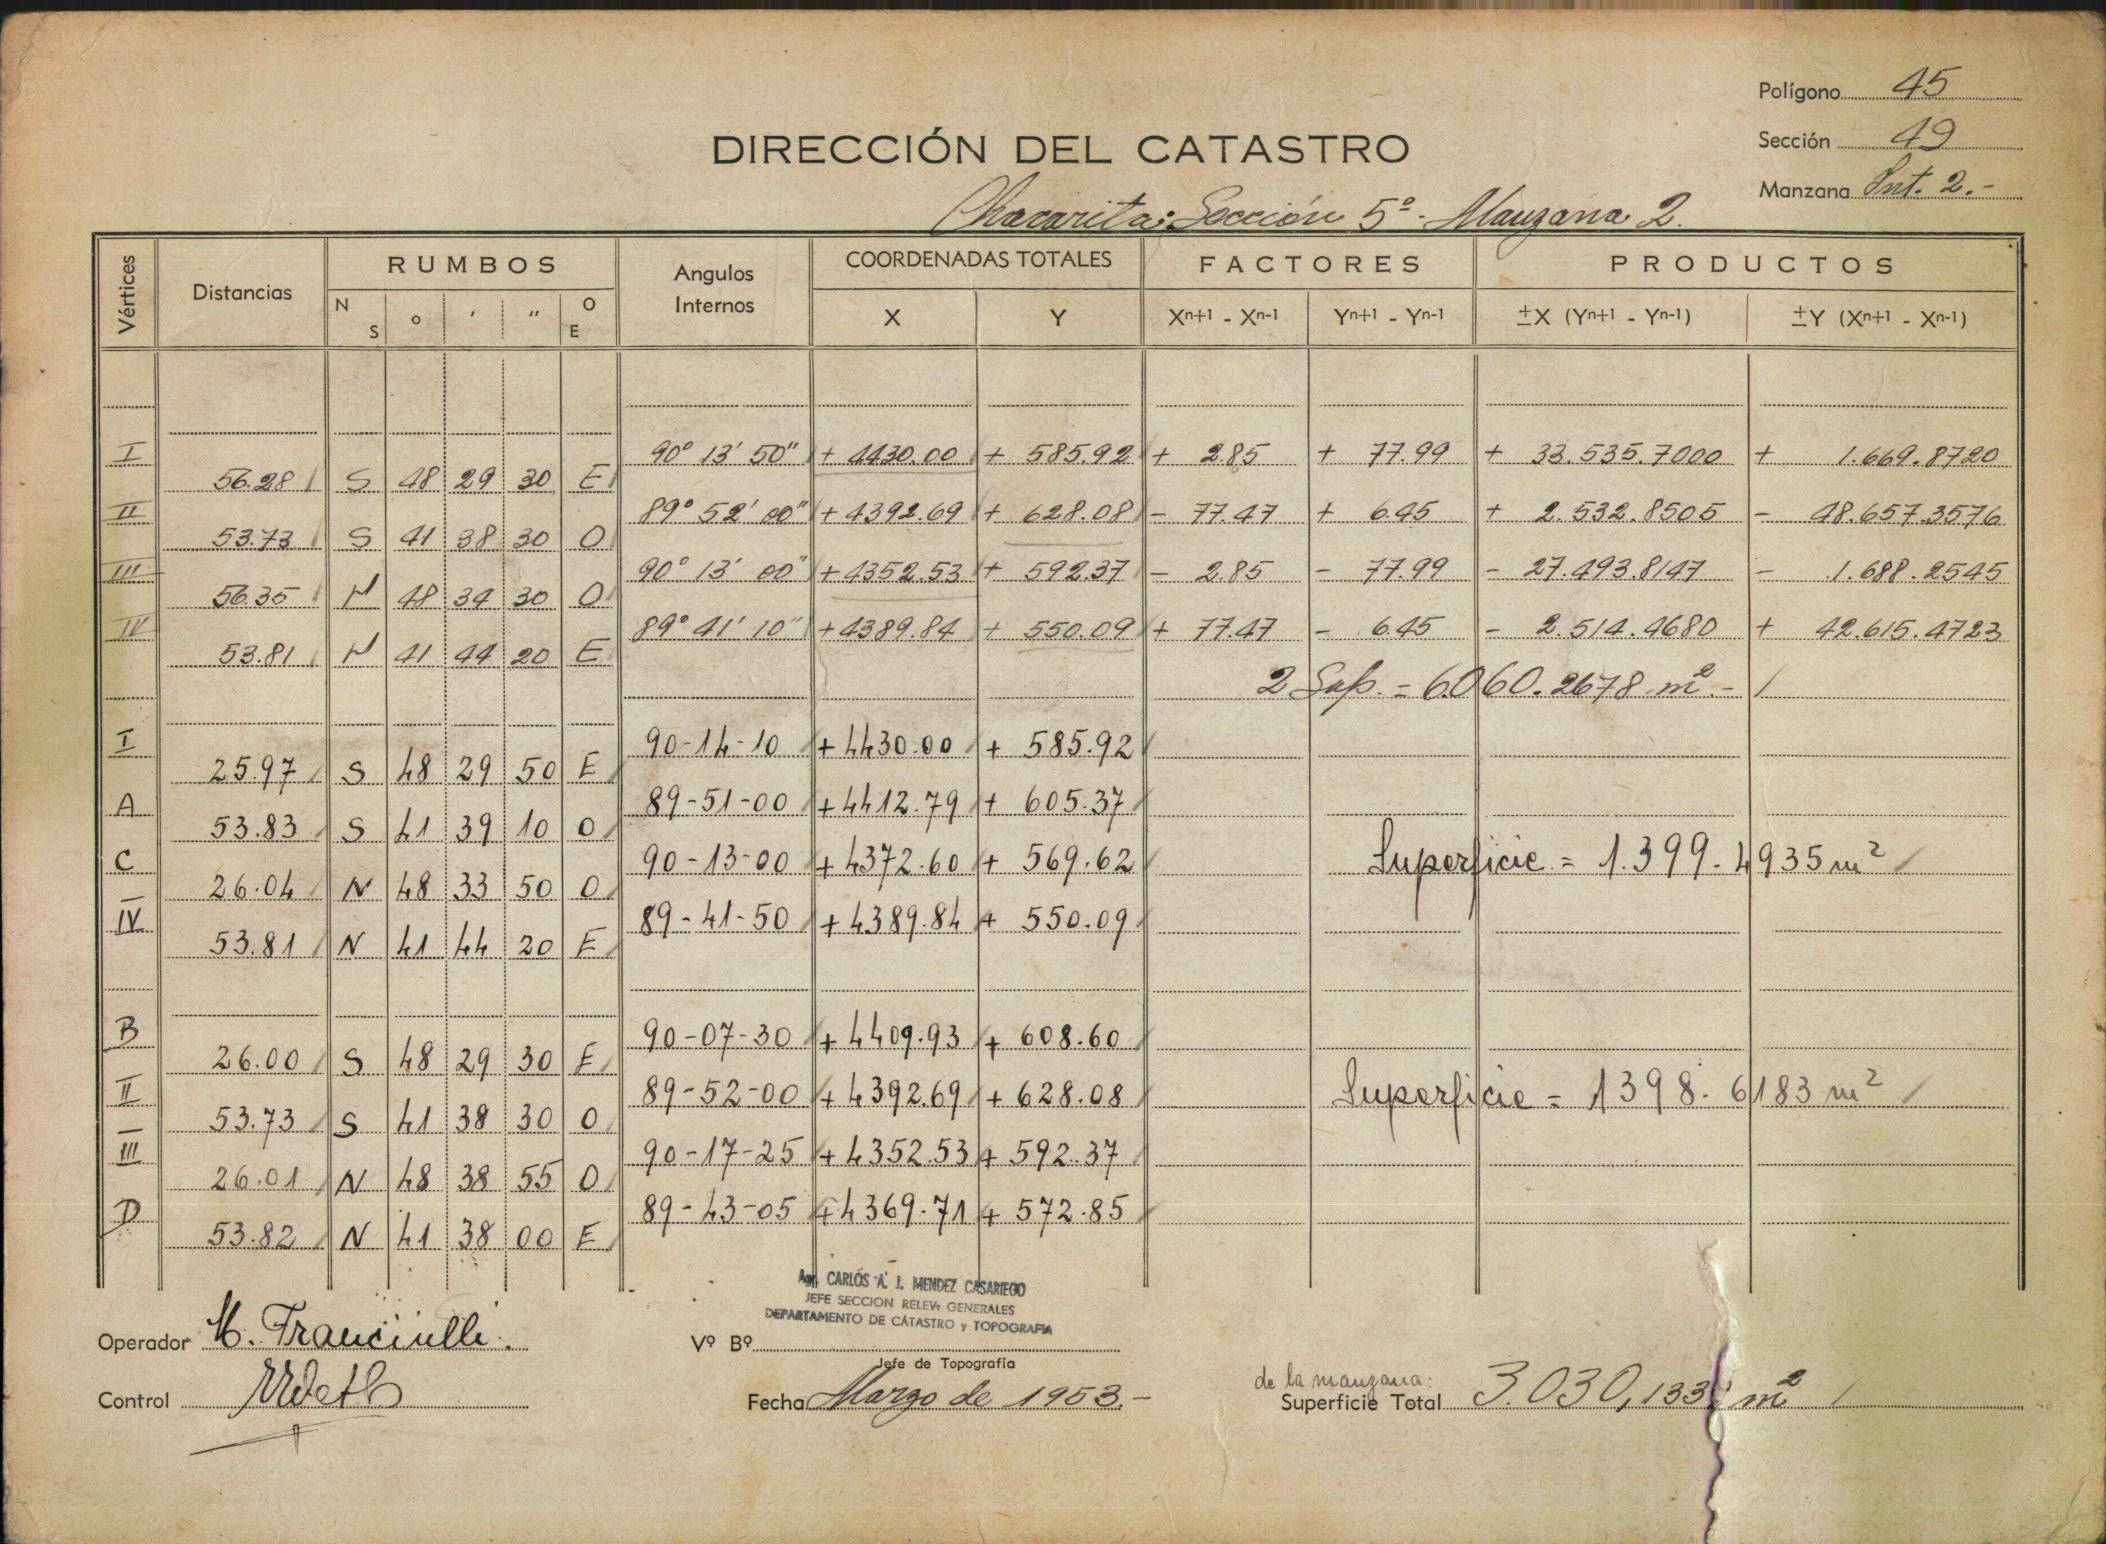 Polígono 45
DIRECCIÓN DEL CATASTRO
Sección 49
Manzana Int. 2.-
Chacarita: Sección 5º - Manzana 2.
Vértices Distancias RUMBOS Angulos Internos COORDENADAS TOTALES FACTORES PRODUCTOS
N S º ′ ″ O E X Y Xⁿ⁺¹ - Xⁿ⁻¹ Yⁿ⁺¹ - Yⁿ⁻¹ ±X (Yⁿ⁺¹ - Yⁿ⁻¹) ±Y (Xⁿ⁺¹ - Xⁿ⁻¹)
I 90° 13' 50" + 4430.00 + 585.92 + 2.85 + 77.99 + 33.535.7000 + 1.669.8720
56.28 S 48 29 30 E
II 89° 52' 00" + 4392.69 + 628.08 - 77.47 + 6.45 + 2.532.8505 - 48.657.3576
53.73 S 41 38 30 O
III 90° 13' 00" + 4352.53 + 592.37 - 2.85 - 77.99 - 27.493.8147 - 1.688.2545
56.35 N 48 34 30 O
IV 89° 41' 10" + 4389.84 + 550.09 + 77.47 - 6.45 - 2.514.4680 + 42.615.4723
53.81 N 41 44 20 E
2 Sup. = 6.060.2678 m².-
I 90-14-10 + 4430.00 + 585.92
25.97 S 48 29 50 E
A 89-51-00 + 4412.79 + 605.37
53.83 S 41 39 10 O
C 90-13-00 + 4372.60 + 569.62 Superficie = 1.399.4935 m²
26.04 N 48 33 50 O
IV 89-41-50 + 4389.84 + 550.09
53.81 N 41 44 20 E
B 90-07-30 + 4409.93 + 608.60
26.00 S 48 29 30 E
II 89-52-00 + 4392.69 + 628.08 Superficie = 1398.6183 m²
53.73 S 41 38 30 O
III 90-17-25 + 4352.53 + 592.37
26.01 N 48 38 55 O
D 89-43-05 + 4369.71 + 572.85
53.82 N 41 38 00 E
Agr. CARLOS A. J. MENDEZ CASARIEGO
JEFE SECCION RELEV. GENERALES
DEPARTAMENTO DE CATASTRO y TOPOGRAFIA
Operador M. Franciulli.
Vº Bº
Jefe de Topografía
Control
Fecha Marzo de 1953.-
de la manzana:
Superficie Total 3.030,133 m²